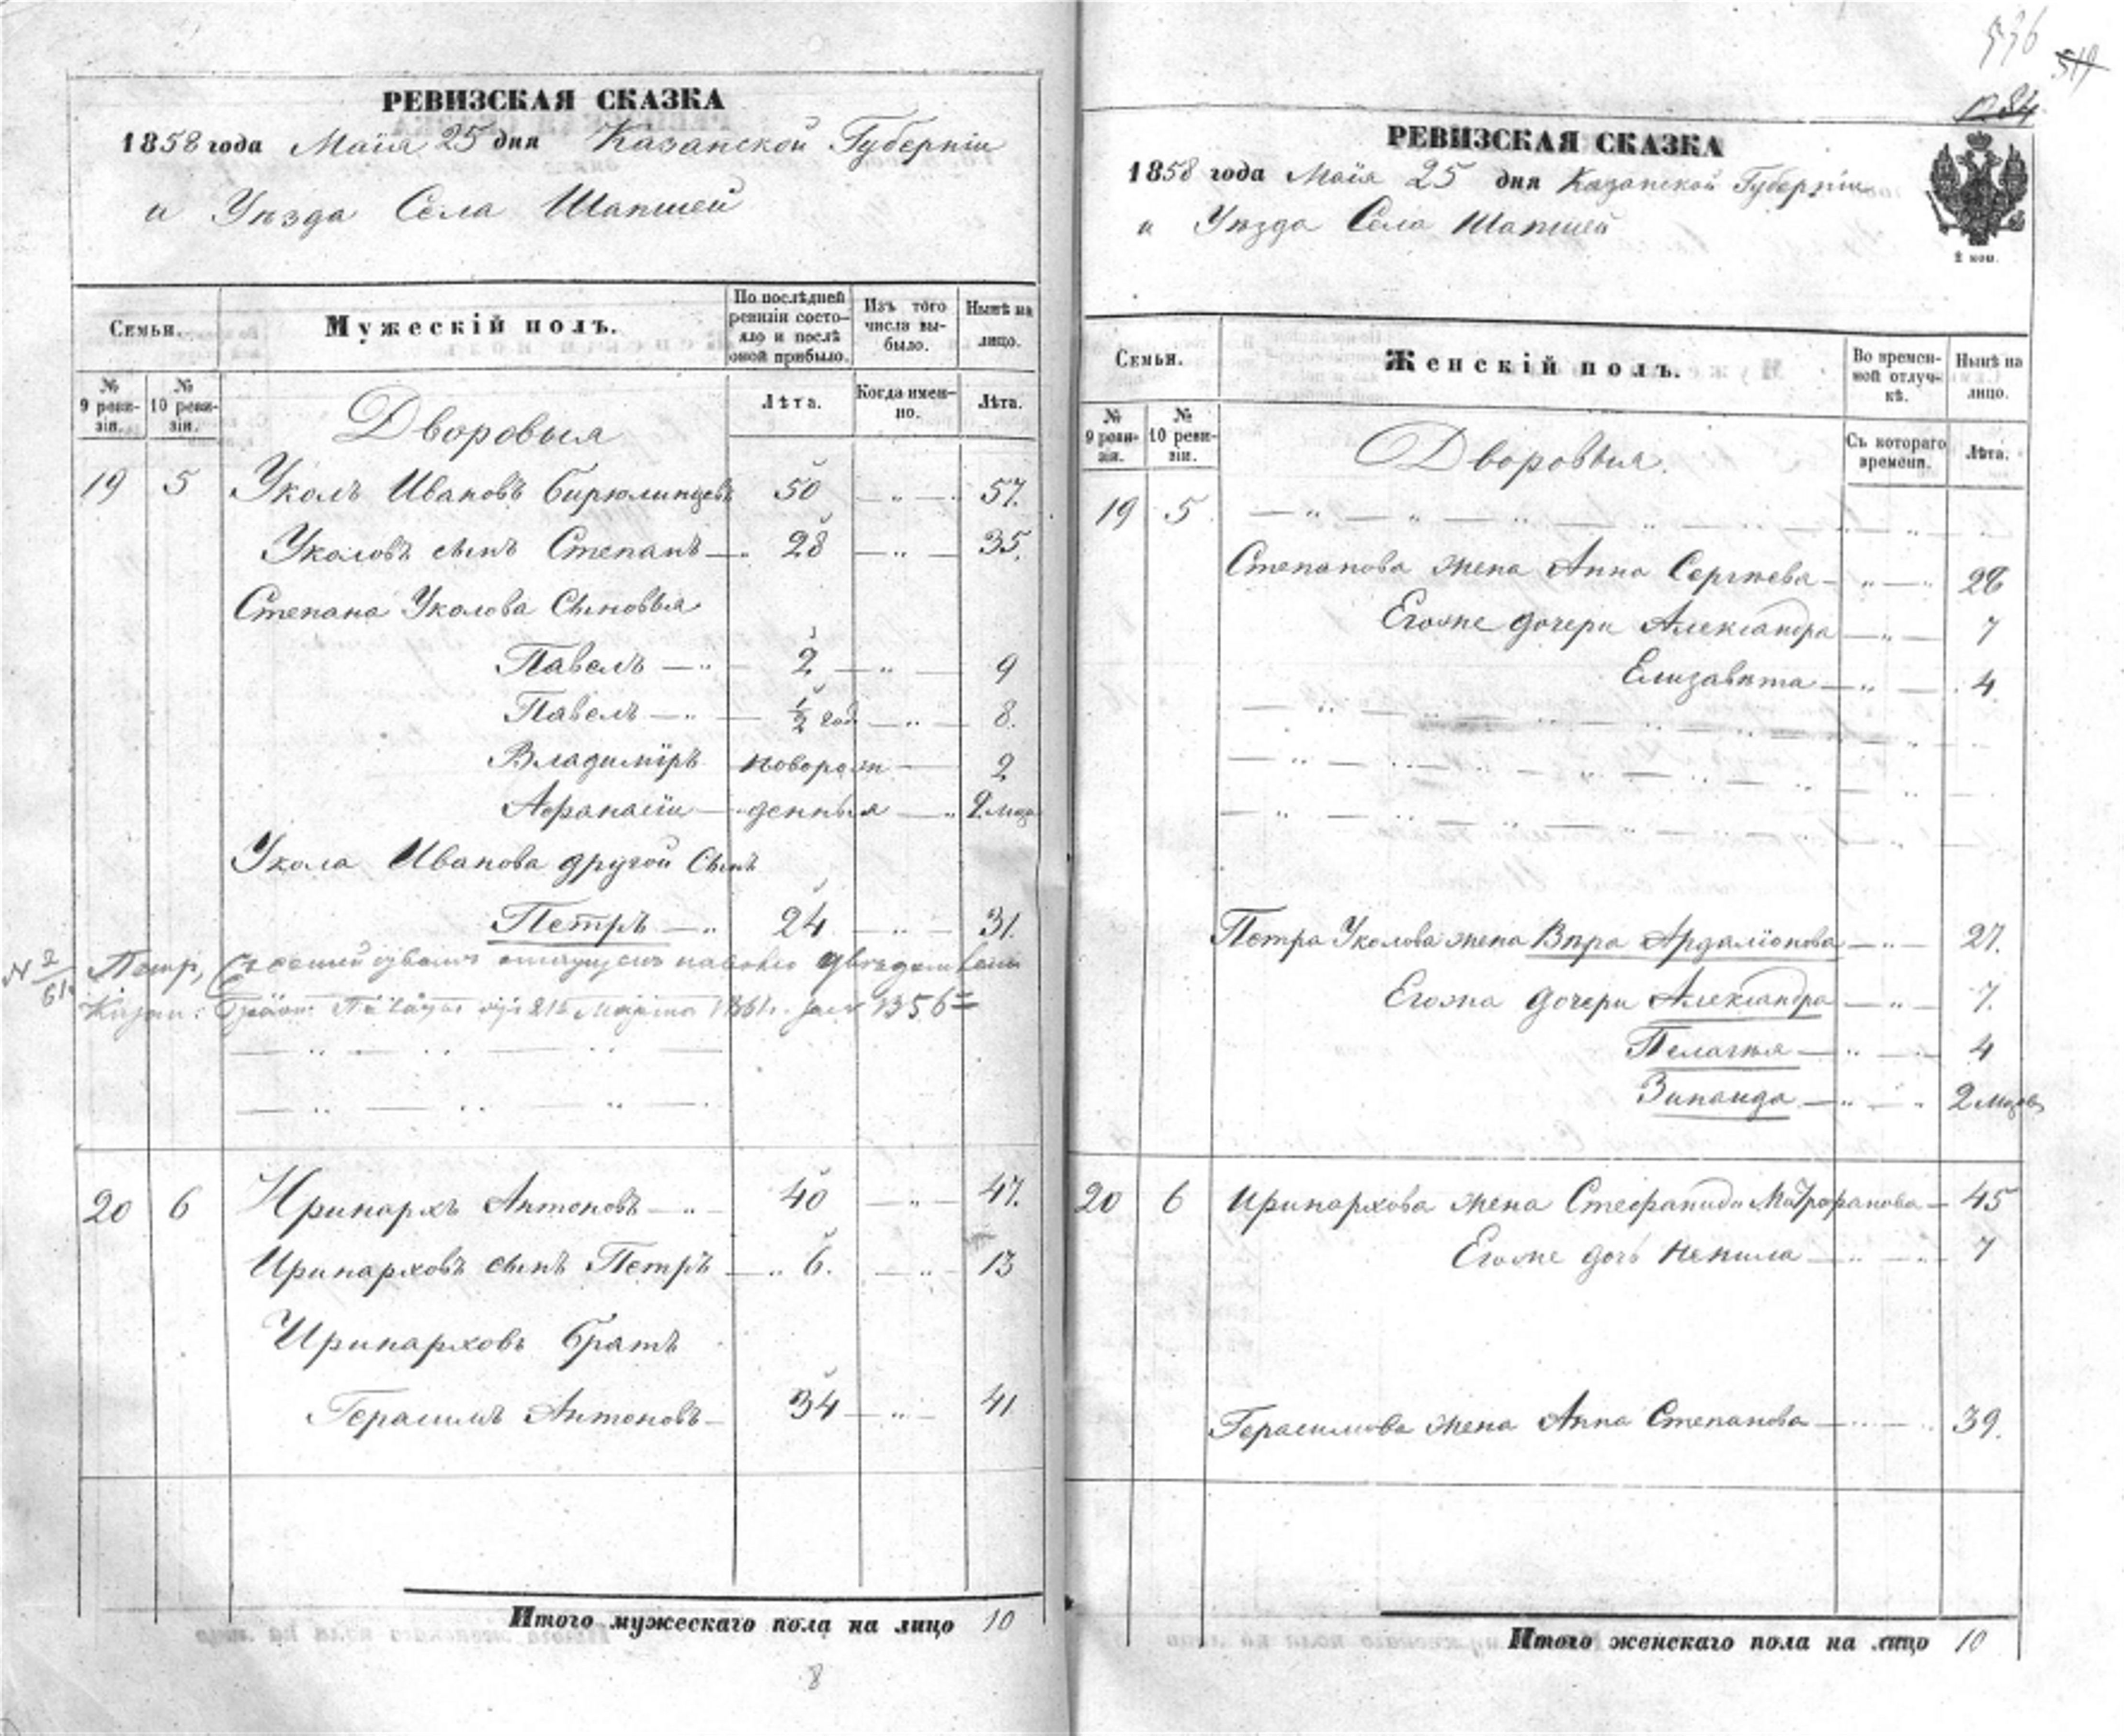 РЕВИЗСКАЯ СКАЗКА
1858 года Маiя 25 дня Казанской Губернiи
и Уѣзда Села Шапшей
Семьи.
Мужескій полъ.
По послѣдней ревизіи состояло и послѣ оной прибыло.
Изъ того числа выбыло.
Нынѣ на лицо.
№ 9 ревизіи.
№ 10 ревизіи.
Лѣта.
Когда именно.
Лѣта.
Дворовыя
19 5 Уколъ Ивановъ Бирюлинцевъ 50 57.
Уколовъ сынъ Степанъ 28 35.
Степана Уколова Сыновья
Павелъ 2 9
Павелъ ½ год 8.
Владимiръ новорож 2
Афранасiи денныя 2 мѣс
Укола Иванова другой Сынъ
Петръ 24 31.
N 2/61 Петр,
Казан. 1861 1356
20 6 Иринархъ Антоновъ 40 47.
Иринарховъ сынъ Петръ 6. 13
Иринарховъ братъ
Герасимъ Антоновъ 34 41
Итого мужескаго пола на лицо 10
8
536
519
1284
РЕВИЗСКАЯ СКАЗКА
1858 года Маiя 25 дня Казанской Губернiи
и Уѣзда Села Шапшей
2 коп.
Семьи.
Женскій полъ.
Во временной отлучкѣ.
Нынѣ на лицо.
№ 9 ревизіи.
№ 10 ревизіи.
Съ котораго времени.
Лѣта.
Дворовыя.
19 5
Степанова жена Анна Сергѣева 28
Егоже дочери Александра 7
Елизавѣта 4
Петра Уколова жена Вѣра Ардалiонова 27.
Егожа дочери Александра 7.
Пелагѣя 4
Зинаида 2 мѣсяц
20 6 Иринархова жена Стефанида Матрофанова 45
Егоже дочь Ненила 7
Герасимова жена Анна Степанова 39.
Итого женскаго пола на лицо 10